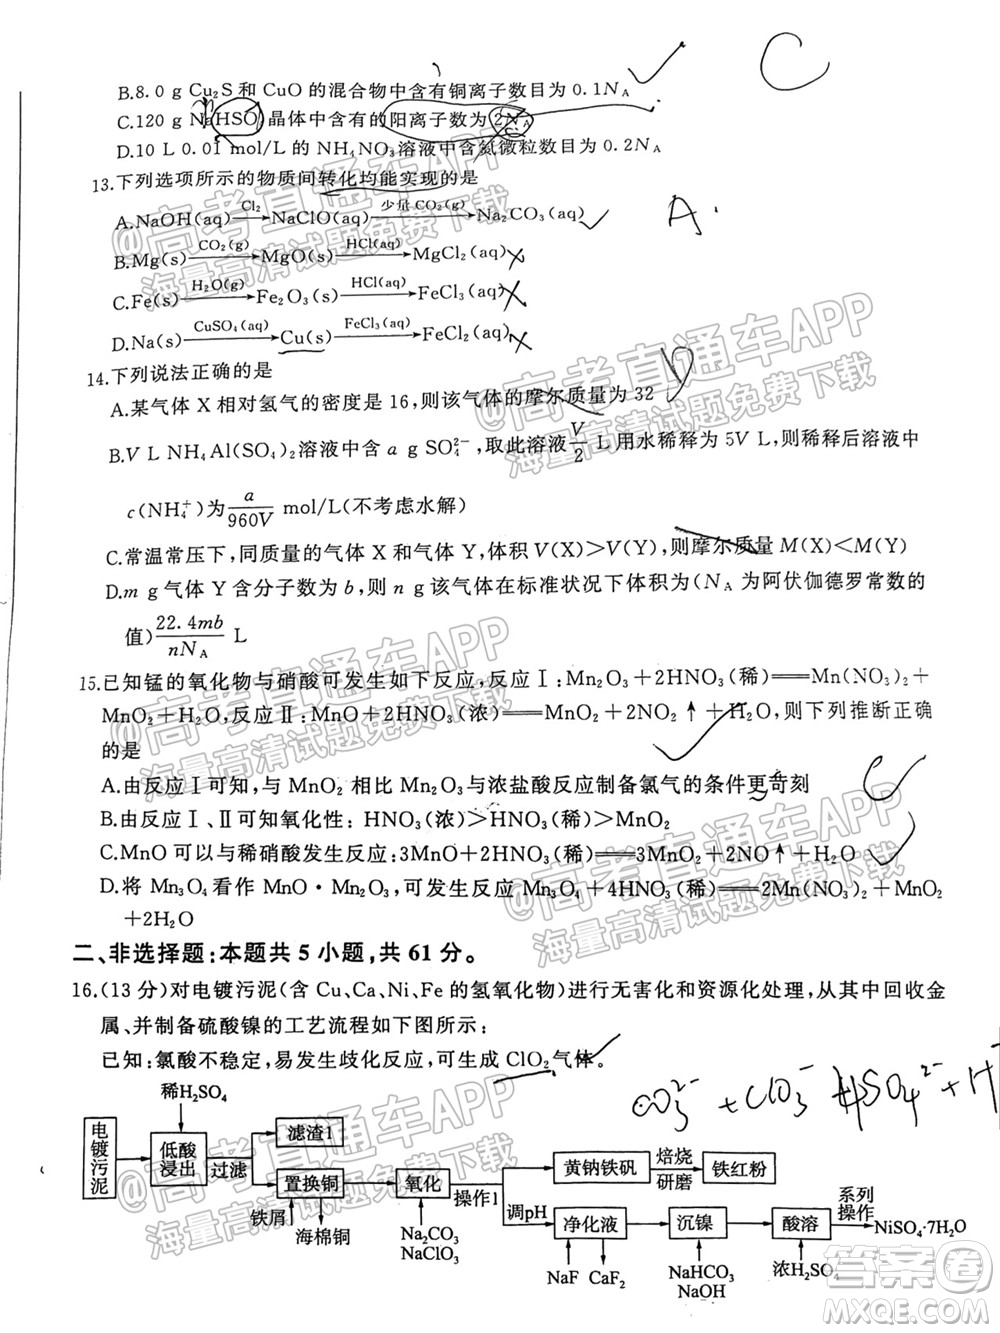 B.8.0 g Cu₂S 和 CuO 的混合物中含有铜离子数目为 0.1Nᴀ
C.120 g NaHSO₄晶体中含有的阳离子数为 2Nᴀ
D.10 L 0.01 mol/L 的 NH₄NO₃溶液中含氮微粒数目为 0.2Nᴀ
C
13.下列选项所示的物质间转化均能实现的是
A.NaOH(aq) —Cl₂→ NaClO(aq) —少量 CO₂(g)→ Na₂CO₃(aq)
A.
B.Mg(s) —CO₂(g)→ MgO(s) —HCl(aq)→ MgCl₂(aq)
C.Fe(s) —H₂O(g)→ Fe₂O₃(s) —HCl(aq)→ FeCl₃(aq)
D.Na(s) —CuSO₄(aq)→ Cu(s) —FeCl₃(aq)→ FeCl₂(aq)
14.下列说法正确的是
D
A.某气体 X 相对氢气的密度是 16,则该气体的摩尔质量为 32
B.V L NH₄Al(SO₄)₂溶液中含 a g SO₄²⁻,取此溶液 V/2 L 用水稀释为 5V L,则稀释后溶液中
c(NH₄⁺)为 a/960V mol/L(不考虑水解)
C.常温常压下,同质量的气体 X 和气体 Y,体积 V(X)>V(Y),则摩尔质量 M(X)<M(Y)
D.m g 气体 Y 含分子数为 b,则 n g 该气体在标准状况下体积为(Nᴀ 为阿伏伽德罗常数的
值) 22.4mb/nNᴀ L
15.已知锰的氧化物与硝酸可发生如下反应,反应Ⅰ:Mn₂O₃+2HNO₃(稀)══Mn(NO₃)₂+
MnO₂+H₂O,反应Ⅱ:MnO+2HNO₃(浓)══MnO₂+2NO₂↑+H₂O,则下列推断正确
的是
C
A.由反应Ⅰ可知,与 MnO₂ 相比 Mn₂O₃ 与浓盐酸反应制备氯气的条件更苛刻
B.由反应Ⅰ、Ⅱ可知氧化性:HNO₃(浓)>HNO₃(稀)>MnO₂
C.MnO 可以与稀硝酸发生反应:3MnO+2HNO₃(稀)══3MnO₂+2NO↑+H₂O
D.将 Mn₃O₄ 看作 MnO·Mn₂O₃,可发生反应 Mn₃O₄+4HNO₃(稀)══2Mn(NO₃)₂+MnO₂
+2H₂O
二、非选择题:本题共 5 小题,共 61 分。
16.(13 分)对电镀污泥(含 Cu、Ca、Ni、Fe 的氢氧化物)进行无害化和资源化处理,从其中回收金
属、并制备硫酸镍的工艺流程如下图所示:
已知:氯酸不稳定,易发生歧化反应,可生成 ClO₂气体。
稀H₂SO₄
电镀污泥
低酸浸出
过滤
滤渣1
置换铜
铁屑
海绵铜
氧化
Na₂CO₃
NaClO₃
操作1
黄钠铁矾
焙烧
研磨
铁红粉
调pH
净化液
NaF
CaF₂
沉镍
NaHCO₃
NaOH
酸溶
浓H₂SO₄
系列
操作
NiSO₄·7H₂O
@高考直通车APP
海量高清试题免费下载
@高考直通车APP
海量高清试题免费下载
@高考直通车APP
海量高清试题免费下载
@高考直通车APP
海量高清试题免费下载
@高考直通车APP
海量高清试题免费下载
答案圈
MXQE.COM